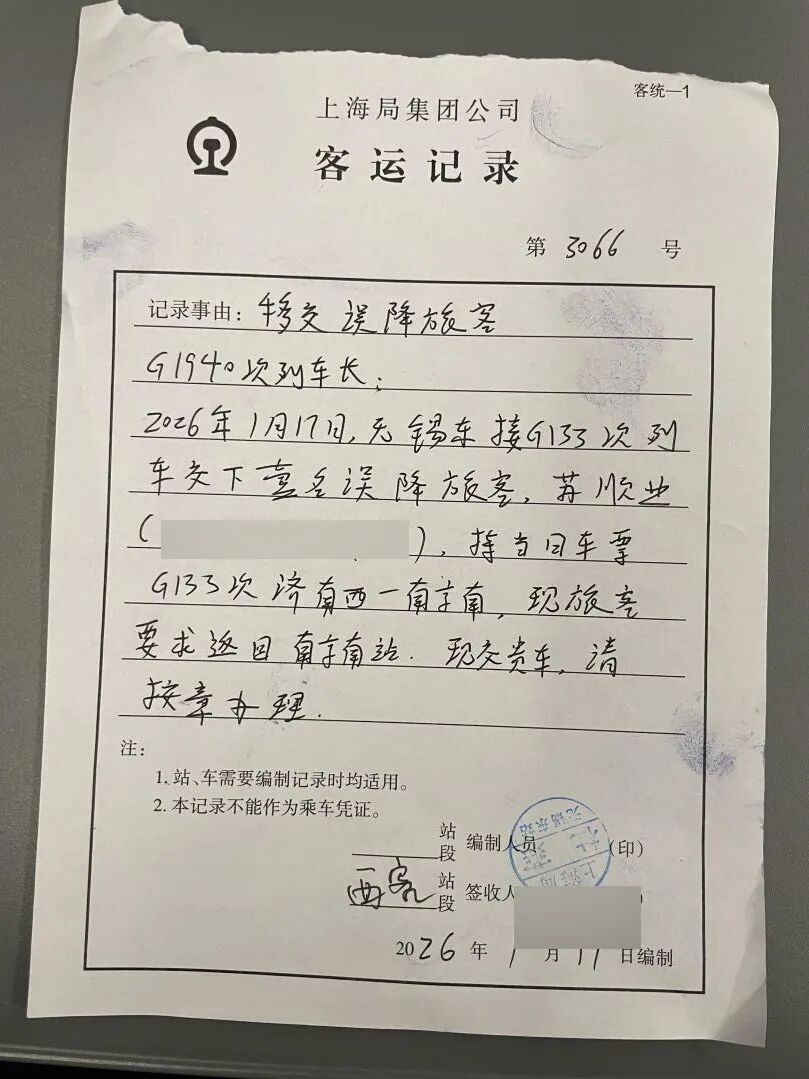 客统一1
上海局集团公司
客运记录
第 3066 号
记录事由：移交误降旅客
G1940次列车长：
2026年1月17日，无锡东接G133次列
车交下壹名误降旅客，苏顺业
（ ），持当日车票
G133次济南西—南京南，现旅客
要求返回南京南站．现交贵车，请
按章办理．
注：
1. 站、车需要编制记录时均适用。
2. 本记录不能作为乘车凭证。
站段 编制人员 （印）
无锡东站
上海局
西客 站段 签收人
2026年1月17日编制